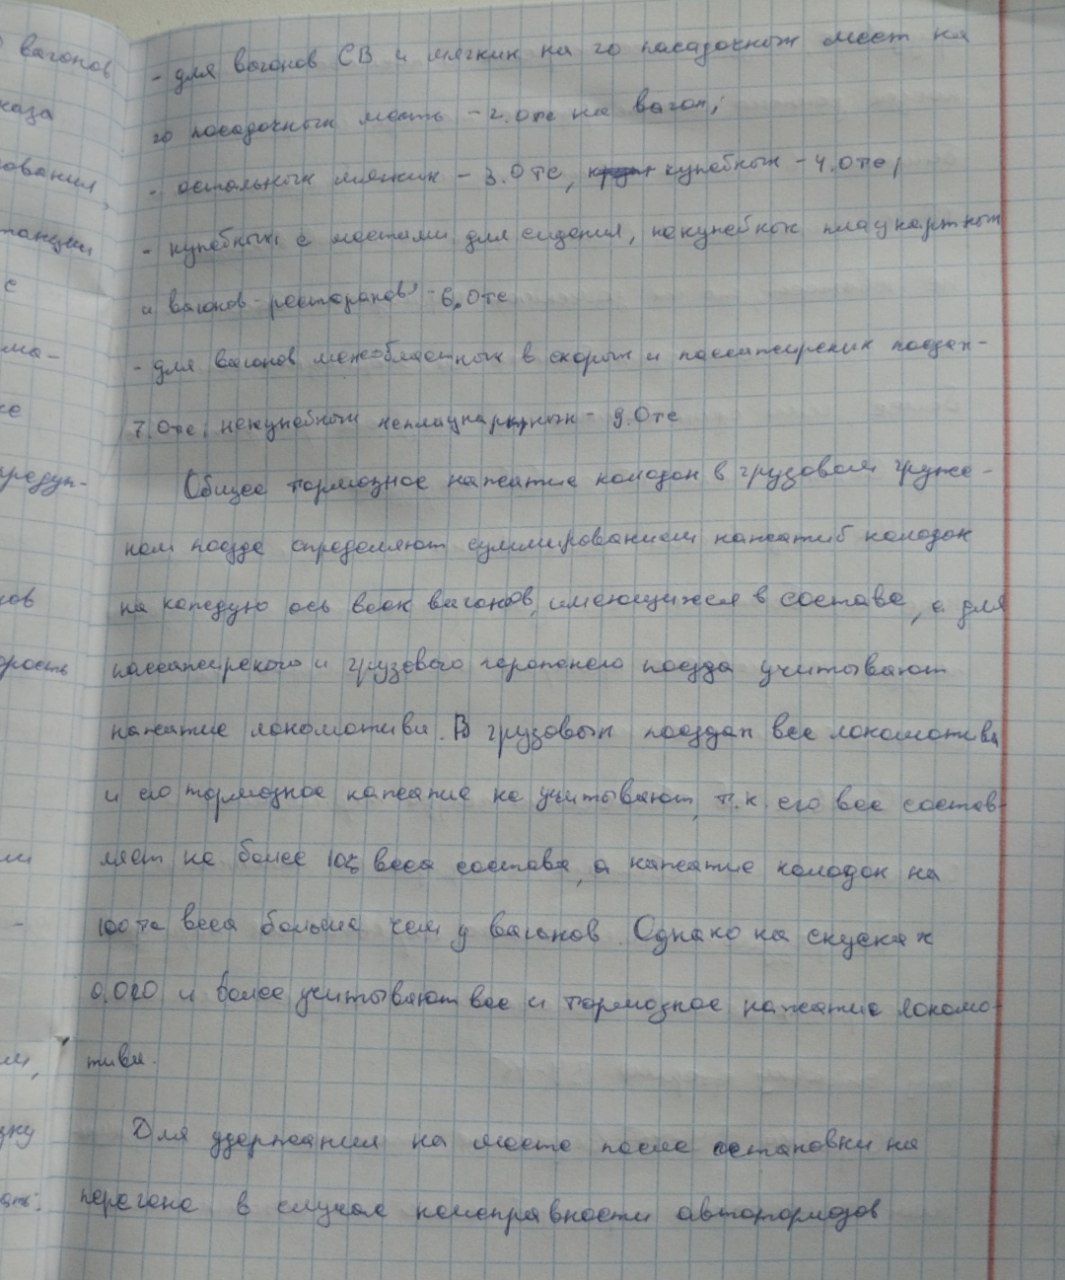 вагонов
каза
ования,
танции
с
ма-
же
предуп-
ов
орость
ми
-
м,
зку
ать:
- для вагонов СВ и мягких на 20 посадочных мест на
20 посадочных месть - 2.0тс на вагон;
- остальных мягких - 3.0тс, купейных - 4.0тс,
- купейных с местами для сидения, некупейных плацкартных
и вагонов-ресторанов - 6.0тс
- для вагонов межобластных в скорых и пассажирских поездах-
7.0тс, некупейных неплацкартных - 9.0тс
Общее тормозное нажатие колодок в грузовом груже-
ном поезде определяют суммированием нажатий колодок
на каждую ось всех вагонов, имеющихся в составе, а для
пассажирского и грузового порожнего поезда учитывают
нажатие локомотива. В грузовых поездах вес локомотива
и его тормозное нажатие не учитывают, т.к. его вес состав-
ляет не более веса состава, а нажатие колодок на
100тс веса больше чем у вагонов. Однако на спусках
0,020 и более учитывают вес и тормозное нажатие локомо-
тива.
Для удержания на месте после остановки на
перегоне в случае неисправности автотормозов